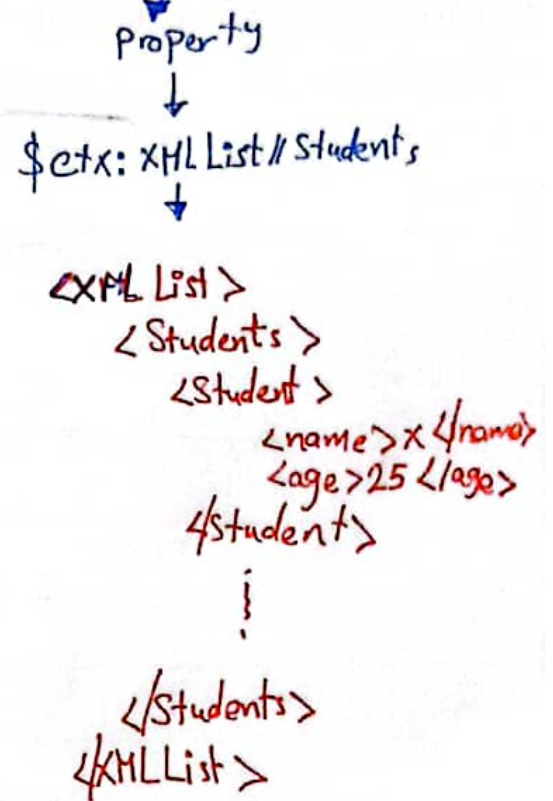 Property
$ctx: XML List // Students
<XML List>
<Students>
<Student>
<name>x</name>
<age>25</age>
</Student>
</Students>
</XMLList>